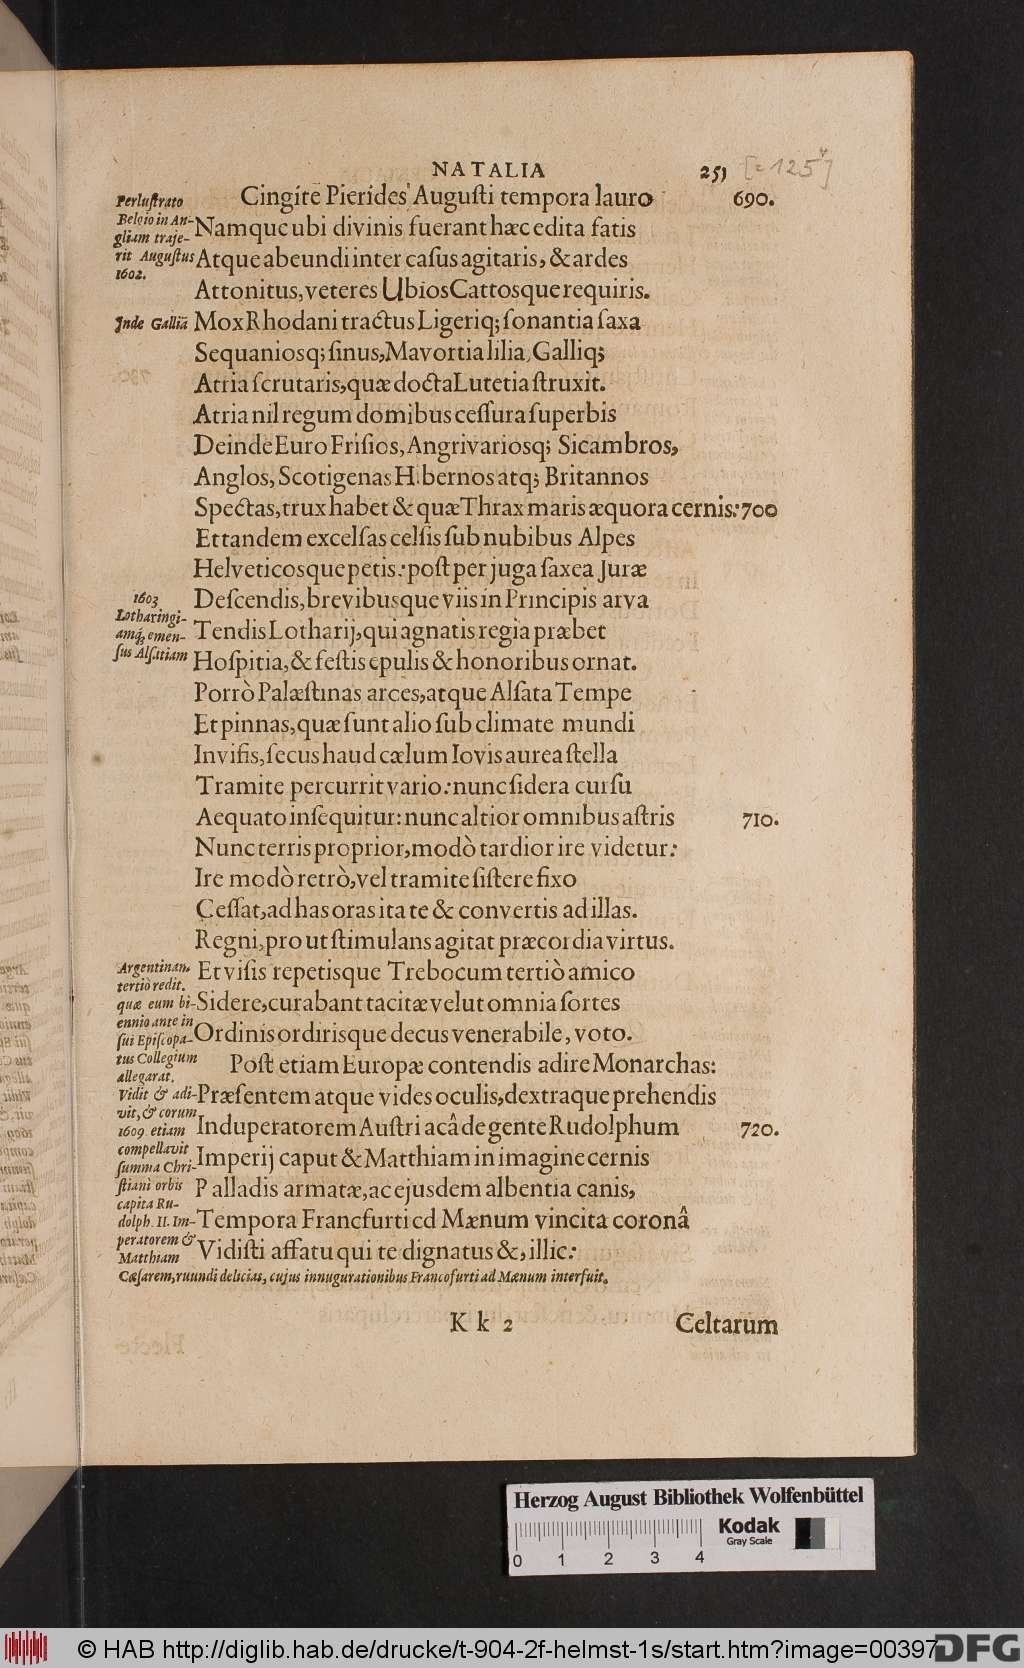 NATALIA 251 [= 125v]
Cingite Pierides Augusti tempora lauro 690.
Namque ubi divinis fuerant hæc edita fatis
Atque abeundi inter casus agitaris, & ardes
Attonitus, veteres Ubios Cattosque requiris.
Mox Rhodani tractus Ligeriq; sonantia saxa
Sequaniosq; sinus, Mavortia lilia, Galliq;
Atria scrutaris, quæ docta Lutetia struxit.
Atria nil regum domibus cessura superbis
Deinde Euro Frisios, Angrivariosq; Sicambros,
Anglos, Scotigenas Hibernos atq; Britannos
Spectas, trux habet & quæ Thrax maris æquora cernis: 700
Et tandem excelsas celsis sub nubibus Alpes
Helveticosque petis: post per juga saxea Juræ
Descendis, brevibusque viis in Principis arva
Tendis Lotharij, qui agnatis regia præbet
Hospitia, & festis epulis & honoribus ornat.
Porrò Palæstinas arces, atque Alsata Tempe
Et pinnas, quæ sunt alio sub climate mundi
Invisis, secus haud cælum Iovis aurea stella
Tramite percurrit vario: nunc sidera cursu
Aequato insequitur: nunc altior omnibus astris 710.
Nunc terris proprior, modò tardior ire videtur:
Ire modò retrò, vel tramite sistere fixo
Cessat, ad has oras ita te & convertis ad illas.
Regni, prout stimulans agitat præcordia virtus.
Et visis repetisque Trebocum tertiò amico
Sidere, curabant tacitæ velut omnia sortes
Ordinis ordirisque decus venerabile, voto.
Post etiam Europæ contendis adire Monarchas:
Præsentem atque vides oculis, dextraque prehendis
Induperatorem Austriacâ de gente Rudolphum 720.
Imperij caput & Matthiam in imagine cernis
Palladis armatæ, ac ejusdem albentia canis,
Tempora Francfurti cd Mænum vincita coronâ
Vidisti affatu qui te dignatus &, illic:
Perlustrato
Belgio in An-
gliam traje-
rit Augustus
1602.
Inde Galliã
1603
Lotharingi-
amq; emen-
sus Alsatiam
Argentinam
tertiò redit.
quæ eum bi-
ennio ante in
sui Episcopa-
tus Collegium
allegarat.
Vidit & adi-
vit, & corum
1609 etiam
compellavit
summa Chri-
stiani orbis
capita Ru-
dolph. II. Im-
peratorem &
Matthiam
Cæsarem, ruundi delicias, cujus innugurationibus Francofurti ad Mænum interfuit.
Kk 2 Celtarum
Herzog August Bibliothek Wolfenbüttel
Kodak
Gray Scale
0 1 2 3 4
© HAB http://diglib.hab.de/drucke/t-904-2f-helmst-1s/start.htm?image=00397
DFG